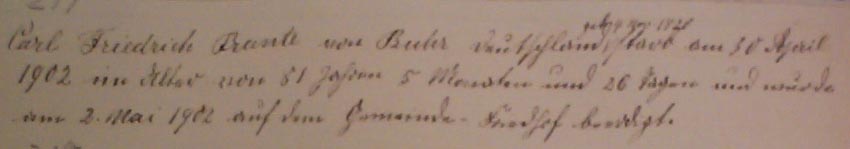 geb. 4 Nov 1820
Carl Friedrich von Deutschland, starb am 30 April
1902 im Alter von 81 Jahren 5 Monaten und 26 Tagen und wurde
am 2. Mai 1902 auf dem Gemeinde-Friedhof beerdigt.